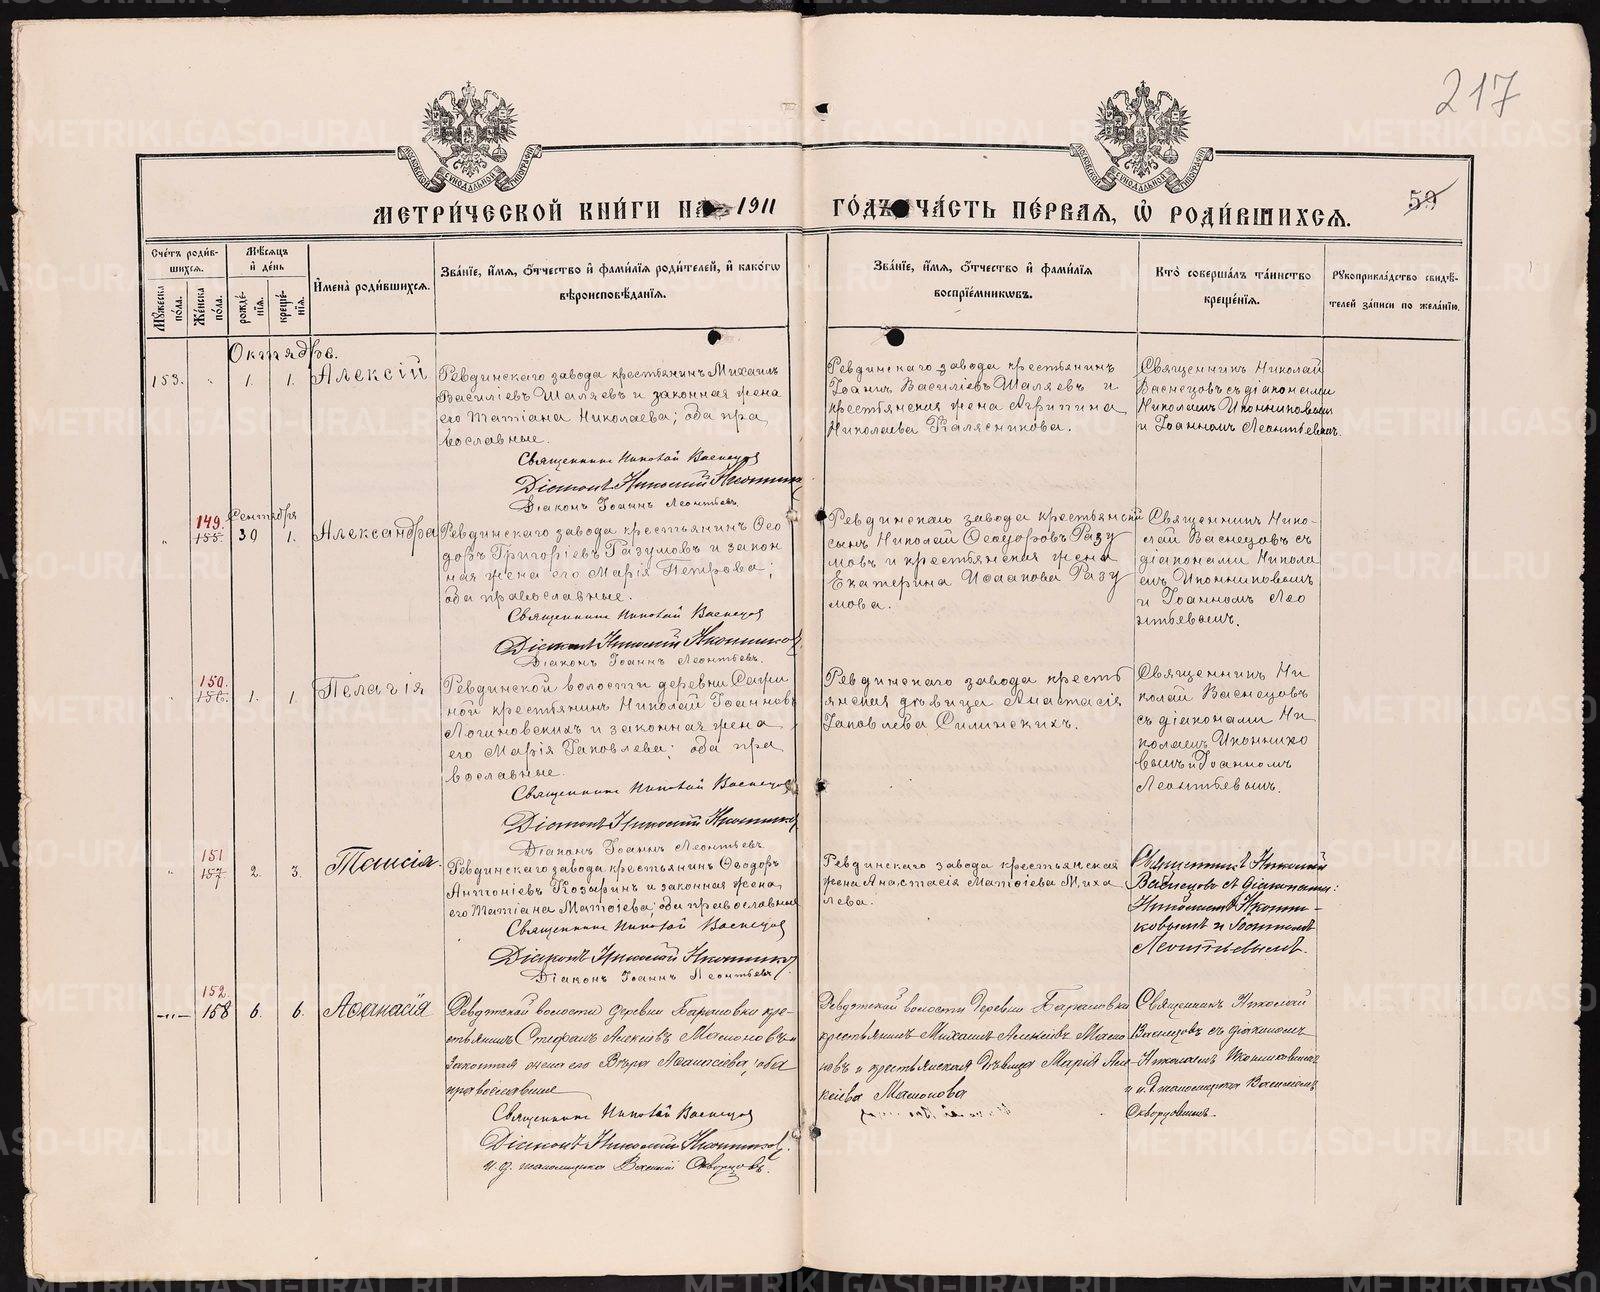 217
МЕТРИ́ЧЕСКОЙ КНИ́ГИ НА 1911 ГО́ДЪ ЧА́СТЬ ПЕ́РВАЯ, Ѡ РОДИ́ВШИХСЯ.
59
Сче́тъ роди́вшихся.
Мꙋ́жеска по́ла.
Же́нска по́ла.
Мѣ́сяцъ и҆ де́нь
рожде́нїя.
креще́нїя.
И҆мена̀ роди́вшихся.
Зва́нїе, и҆́мя, ѻ҆́тчество и҆ фами́лїя роди́телей, и҆ како́гѡ
вѣроисповѣ́данїя.
Зва́нїе, и҆́мя, ѻ҆́тчество и҆ фами́лїя
воспрїе́мникѡвъ.
Кто̀ соверша́лъ та́инство
креще́нїя.
Рꙋкоприкла́дство свидѣ́телей за́писи по жела́нїю.
Октябрь.
153. " 1. 1. Алексій
Ревдинскаго завода крестьянинъ Михаилъ
Василіевъ Шаляевъ и законная жена
его Татіана Николаева; оба пра
вославные.
Священникъ Николай Васнецовъ
Діаконъ Николай Иконниковъ
Діаконъ Іоаннъ Леонтьевъ.
Ревдинскаго завода крестьянинъ
Іоаннъ Василіевъ Шаляевъ и
крестьянская жена Агрипина
Николаева Калясникова.
Священникъ Николай
Васнецовъ съ діаконами
Николаемъ Иконниковымъ
и Іоанномъ Леонтьевымъ.
Сентября
" 149. 155. 30 1. Александра
Ревдинскаго завода крестьянинъ Ѳео
доръ Григоріевъ Разумовъ и закон
ная жена его Марія Петрова;
оба православные.
Священникъ Николай Васнецовъ
Діаконъ Николай Иконниковъ
Діаконъ Іоаннъ Леонтьевъ.
Ревдинскаго завода крестьянскій
сынъ Николай Ѳеодоровъ Разу
мовъ и крестьянская жена
Екатерина Исаакова Разу
мова.
Священникъ Нико-
лай Васнецовъ съ
діаконами Никола
емъ Иконниковымъ
и Іоанномъ Лео
нтьевымъ.
" 150. 156. 1. 1. Пелагія
Ревдинской волости деревни Сафи
ной крестьянинъ Николай Іоанновъ
Логиновскихъ и законная жена
его Марія Іаковлева; оба пра
вославные.
Священникъ Николай Васнецовъ
Діаконъ Николай Иконниковъ
Діаконъ Іоаннъ Леонтьевъ.
Ревдинскаго завода кресть
янская дѣвица Анастасія
Іаковлева Силинскихъ.
Священникъ Ни
колай Васнецовъ
съ діаконами Ни
колаемъ Иконнико
вымъ и Іоанномъ
Леонтьевымъ.
" 151 157. 2. 3. Таисія.
Ревдинскаго завода крестьянинъ Ѳеодоръ
Антоніевъ Козыринъ и законная жена
его Татіана Матѳіева; оба православные
Священникъ Николай Васнецовъ
Діаконъ Николай Иконниковъ
Діаконъ Іоаннъ Леонтьевъ.
Ревдинскаго завода крестьянская
жена Анастасія Матѳіева Миха
лева.
Священникъ Николай
Васнецовъ съ діаконами:
Николаемъ Иконни-
ковымъ и Іоанномъ
Леонтьевымъ.
-"- 152. 158 6. 6. Аѳанасія
Ревдинской волости деревни Барановки кре-
стьянинъ Стефанъ Алексѣевъ Мамоновъ и
законная жена его Вѣра Аѳанасіева, оба
православные
Священникъ Николай Васнецовъ
Діаконъ Николай Иконниковъ.
И. д. псаломщика Василій Скворцовъ.
Ревдинской волости деревни Барановки
крестьянинъ Михаилъ Алексѣевъ Мамо
новъ и крестьянская дѣвица Марія Але
ксіева Мамонова
Священникъ Николай
Васнецовъ съ діакономъ
Николаемъ Иконниковымъ
и и. д. псаломщика Василіемъ
Скворцовымъ.